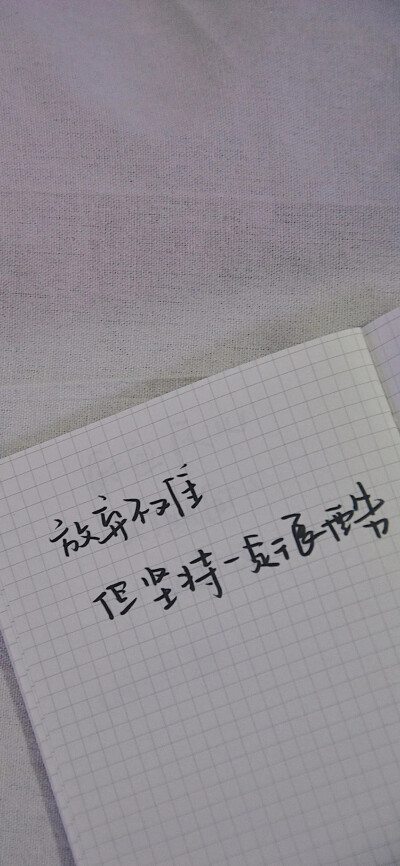 放弃不难
但坚持一点很酷